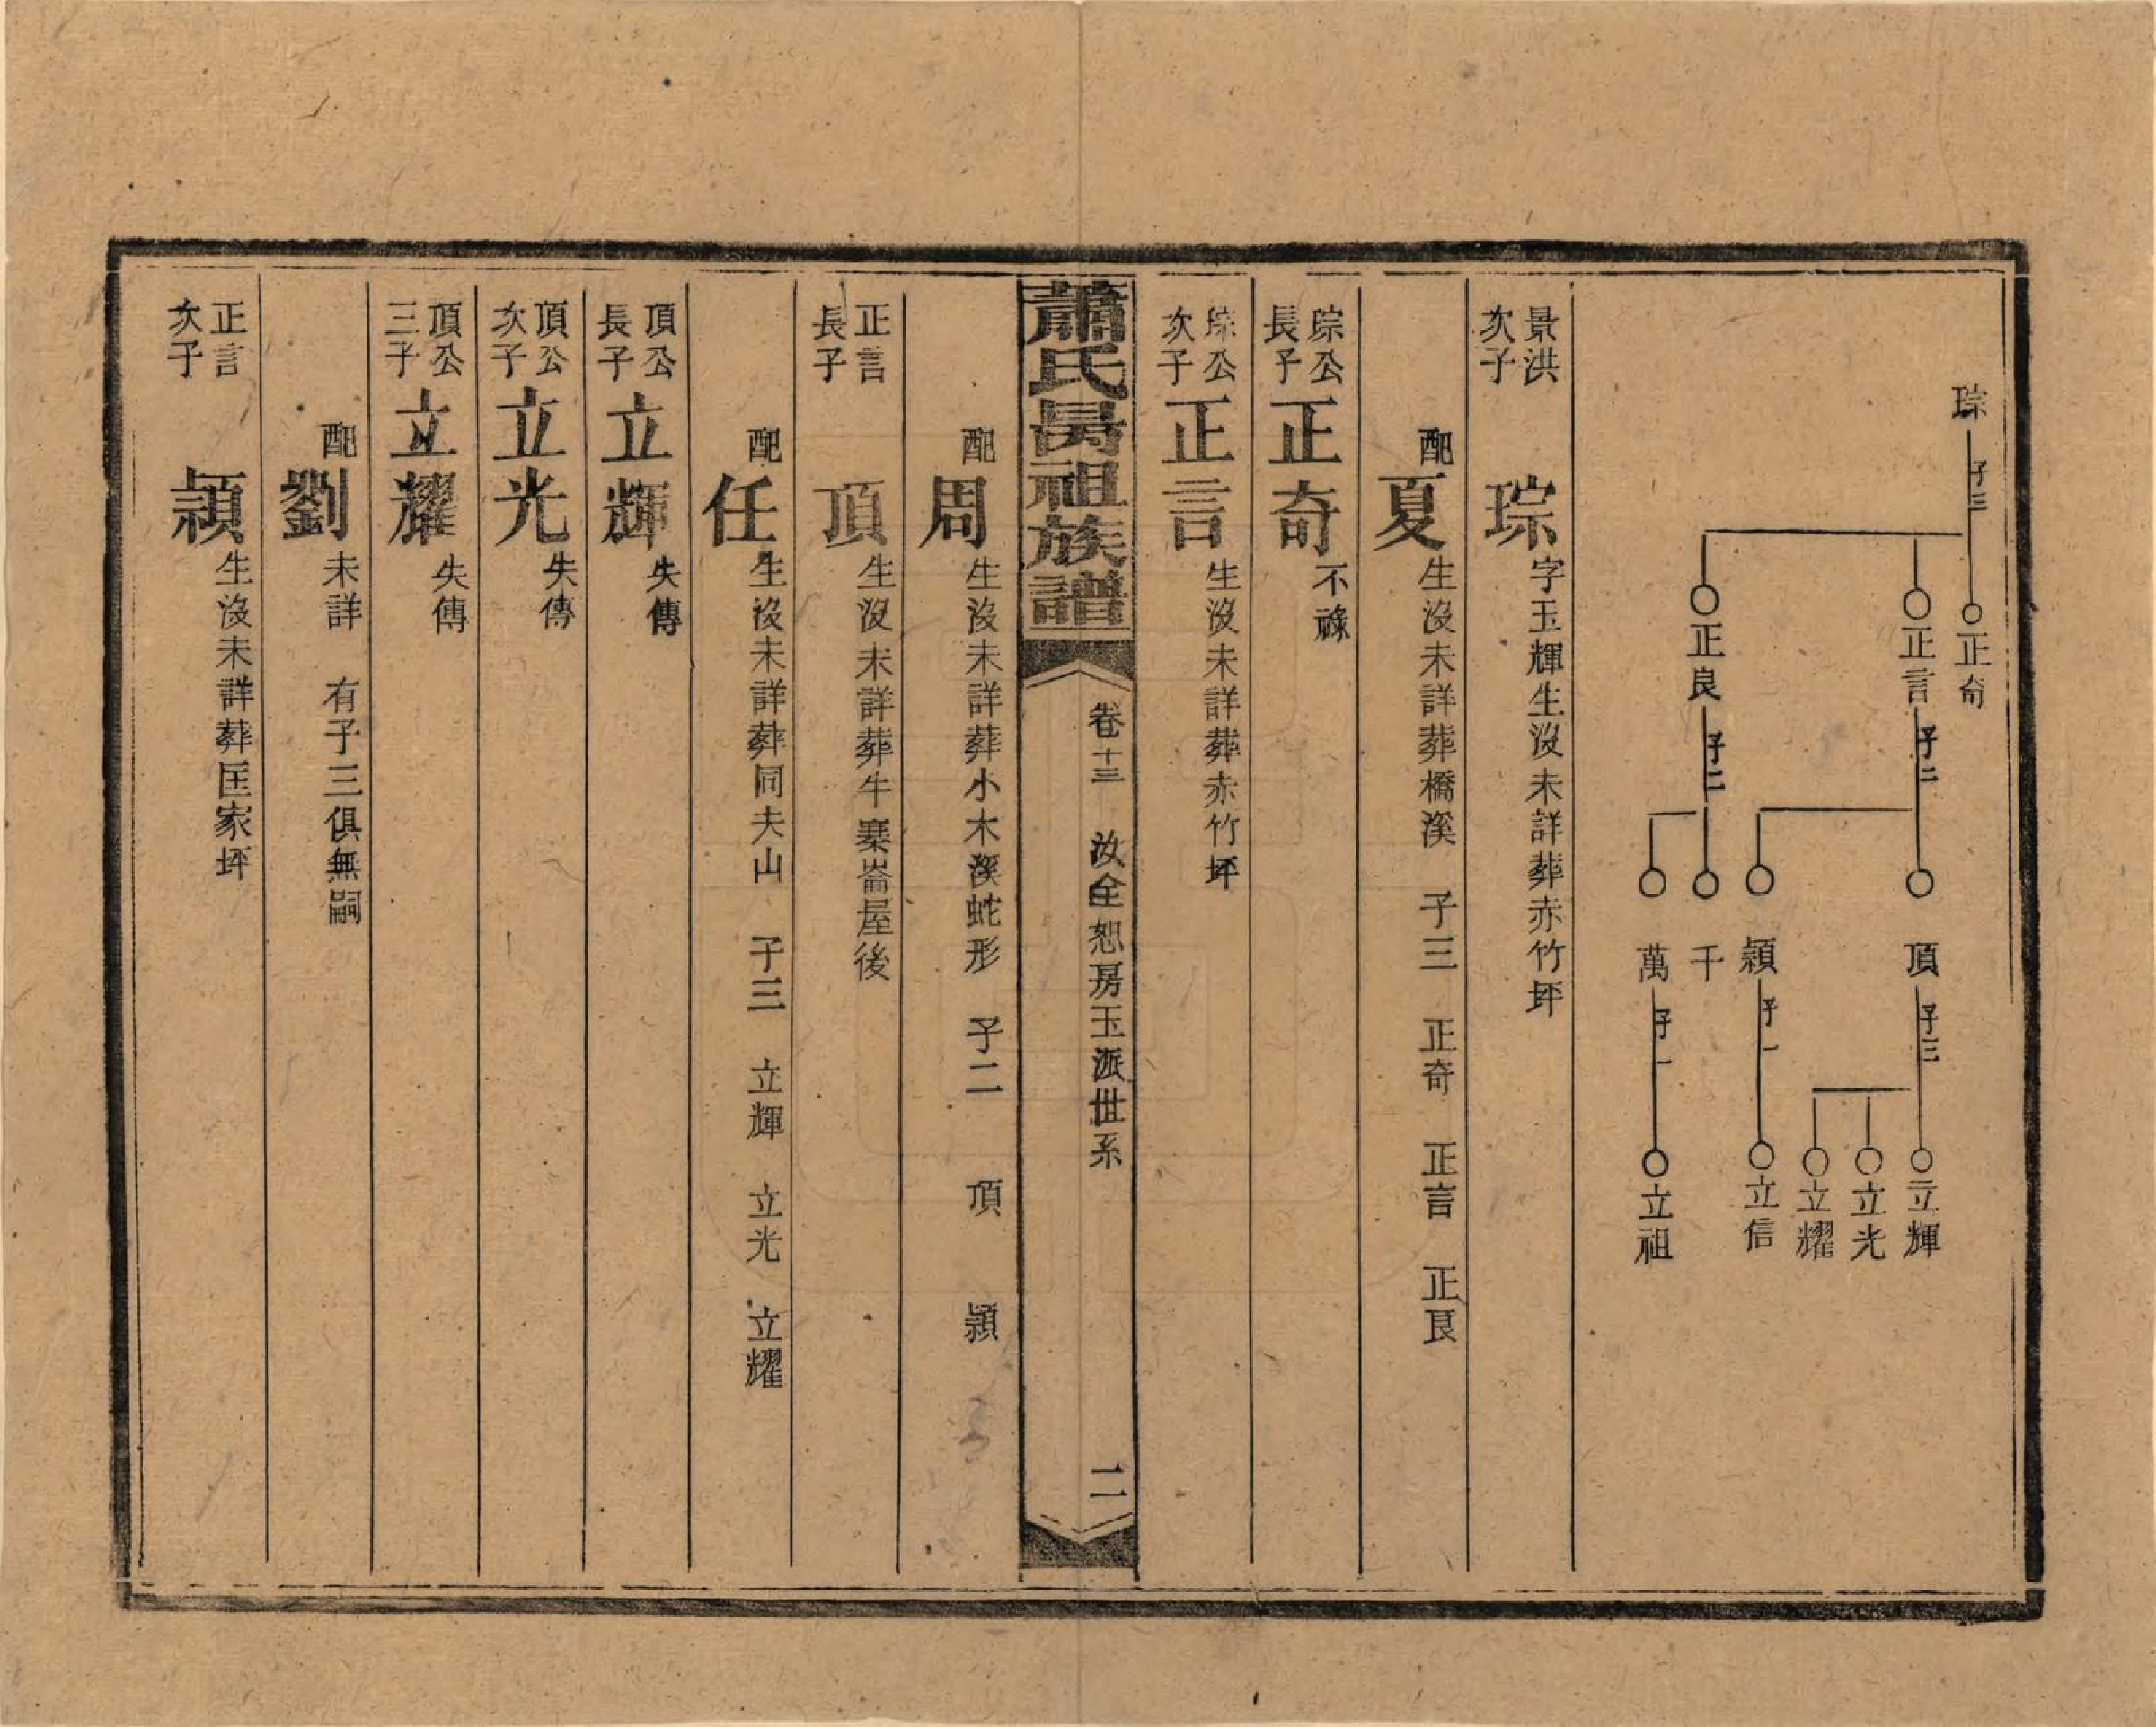 琮
子三
正奇
正言
正良
子二
子二
頂
穎
千
萬
子三
子一
子一
立輝
立光
立耀
立信
立祖
景洪次子 琮 字玉輝生沒未詳葬赤竹坪
配夏 生沒未詳葬橋溪 子三 正奇 正言 正良
琮公長子 正奇 不祿
琮公次子 正言 生沒未詳葬赤竹坪
蕭氏昺祖族譜 卷十三 汝全恕房玉派世系 二
配周 生沒未詳葬小木溪蛇形 子二 頂 穎
正言長子 頂 生沒未詳葬牛寨崙屋後
配任 生沒未詳葬同夫山 子三 立輝 立光 立耀
頂公長子 立輝 失傳
頂公次子 立光 失傳
頂公三子 立耀 失傳
配劉 未詳 有子三俱無嗣
正言次子 穎 生沒未詳葬匡家坪